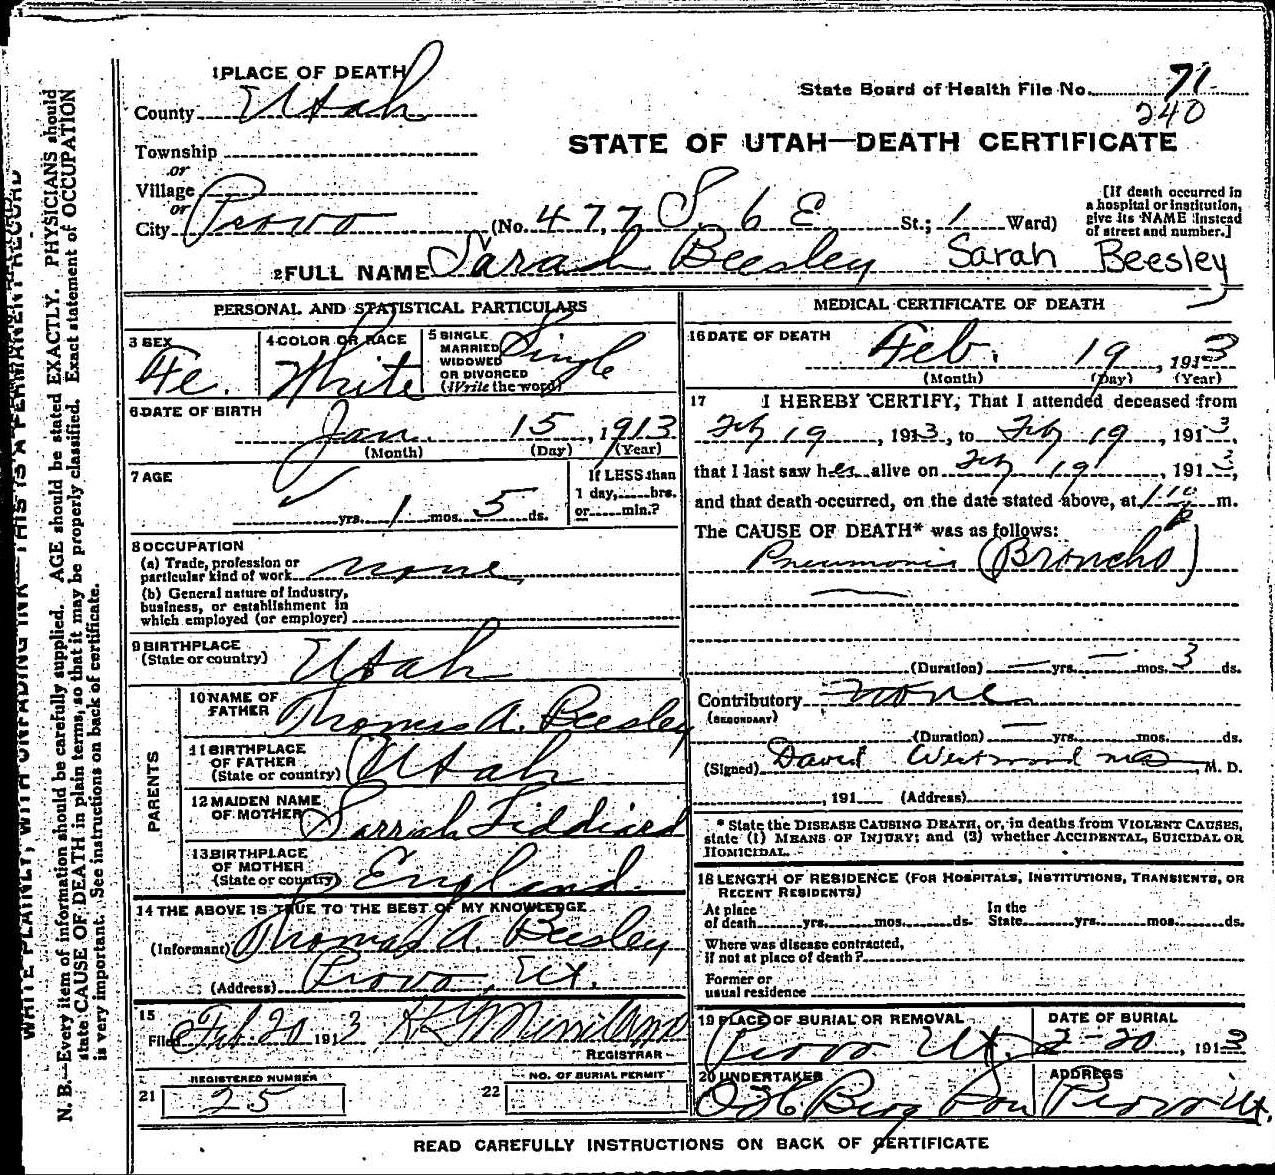 1 PLACE OF DEATH
State Board of Health File No. 71
240
County Utah
STATE OF UTAH—DEATH CERTIFICATE
Township
or
Village
or
City Provo (No. 477 S. 6 E St.; 1 Ward)
[If death occurred in
a hospital or institution,
give its NAME instead
of street and number.]
2 FULL NAME Sarah Beesley Sarah Beesley
PERSONAL AND STATISTICAL PARTICULARS
3 SEX
Fe.
4 COLOR OR RACE
White
5 SINGLE
MARRIED
WIDOWED
OR DIVORCED
(Write the word)
Single
6 DATE OF BIRTH
Jan. 15, 1913
(Month) (Day) (Year)
7 AGE
yrs. 1 mos. 5 ds.
If LESS than
1 day, hrs.
or min.?
8 OCCUPATION
(a) Trade, profession or
particular kind of work none
(b) General nature of industry,
business, or establishment in
which employed (or employer)
9 BIRTHPLACE
(State or country) Utah
PARENTS
10 NAME OF
FATHER Thomas A. Beesley
11 BIRTHPLACE
OF FATHER
(State or country) Utah
12 MAIDEN NAME
OF MOTHER Sarrah Fiddiard
13 BIRTHPLACE
OF MOTHER
(State or country) England.
14 THE ABOVE IS TRUE TO THE BEST OF MY KNOWLEDGE
(Informant) Thomas A. Beesley
(Address) Provo, Ut.
15
Filed Feb. 20 1913
REGISTRAR
REGISTERED NUMBER
21 25
NO. OF BURIAL PERMIT
22
MEDICAL CERTIFICATE OF DEATH
16 DATE OF DEATH
Feb. 19, 1913
(Month) (Day) (Year)
17 I HEREBY CERTIFY, That I attended deceased from
Feby 19, 1913, to Feby 19, 1913,
that I last saw her alive on Feby 19, 1913,
and that death occurred, on the date stated above, at m.
The CAUSE OF DEATH* was as follows:
Pneumonia (Broncho)
(Duration) — yrs. — mos. 3 ds.
Contributory none
(SECONDARY)
(Duration) — yrs. mos. ds.
(Signed) David Westwood M. D.
, 191 (Address)
* State the DISEASE CAUSING DEATH, or, in deaths from VIOLENT CAUSES,
state (1) MEANS OF INJURY; and (2) whether ACCIDENTAL, SUICIDAL OR
HOMICIDAL.
18 LENGTH OF RESIDENCE (FOR HOSPITALS, INSTITUTIONS, TRANSIENTS, OR
RECENT RESIDENTS)
At place
of death yrs. mos. ds.
In the
State yrs. mos. ds.
Where was disease contracted,
if not at place of death?
Former or
usual residence
19 PLACE OF BURIAL OR REMOVAL
Provo Ut.
DATE OF BURIAL
2-20, 1913
20 UNDERTAKER
Berg Son
ADDRESS
Provo Ut.
READ CAREFULLY INSTRUCTIONS ON BACK OF CERTIFICATE
WRITE PLAINLY, WITH UNFADING INK—THIS IS A PERMANENT RECORD
N. B.—Every item of information should be carefully supplied. AGE should be stated EXACTLY. PHYSICIANS should
state CAUSE OF DEATH in plain terms, so that it may be properly classified. Exact statement of OCCUPATION
is very important. See instructions on back of certificate.